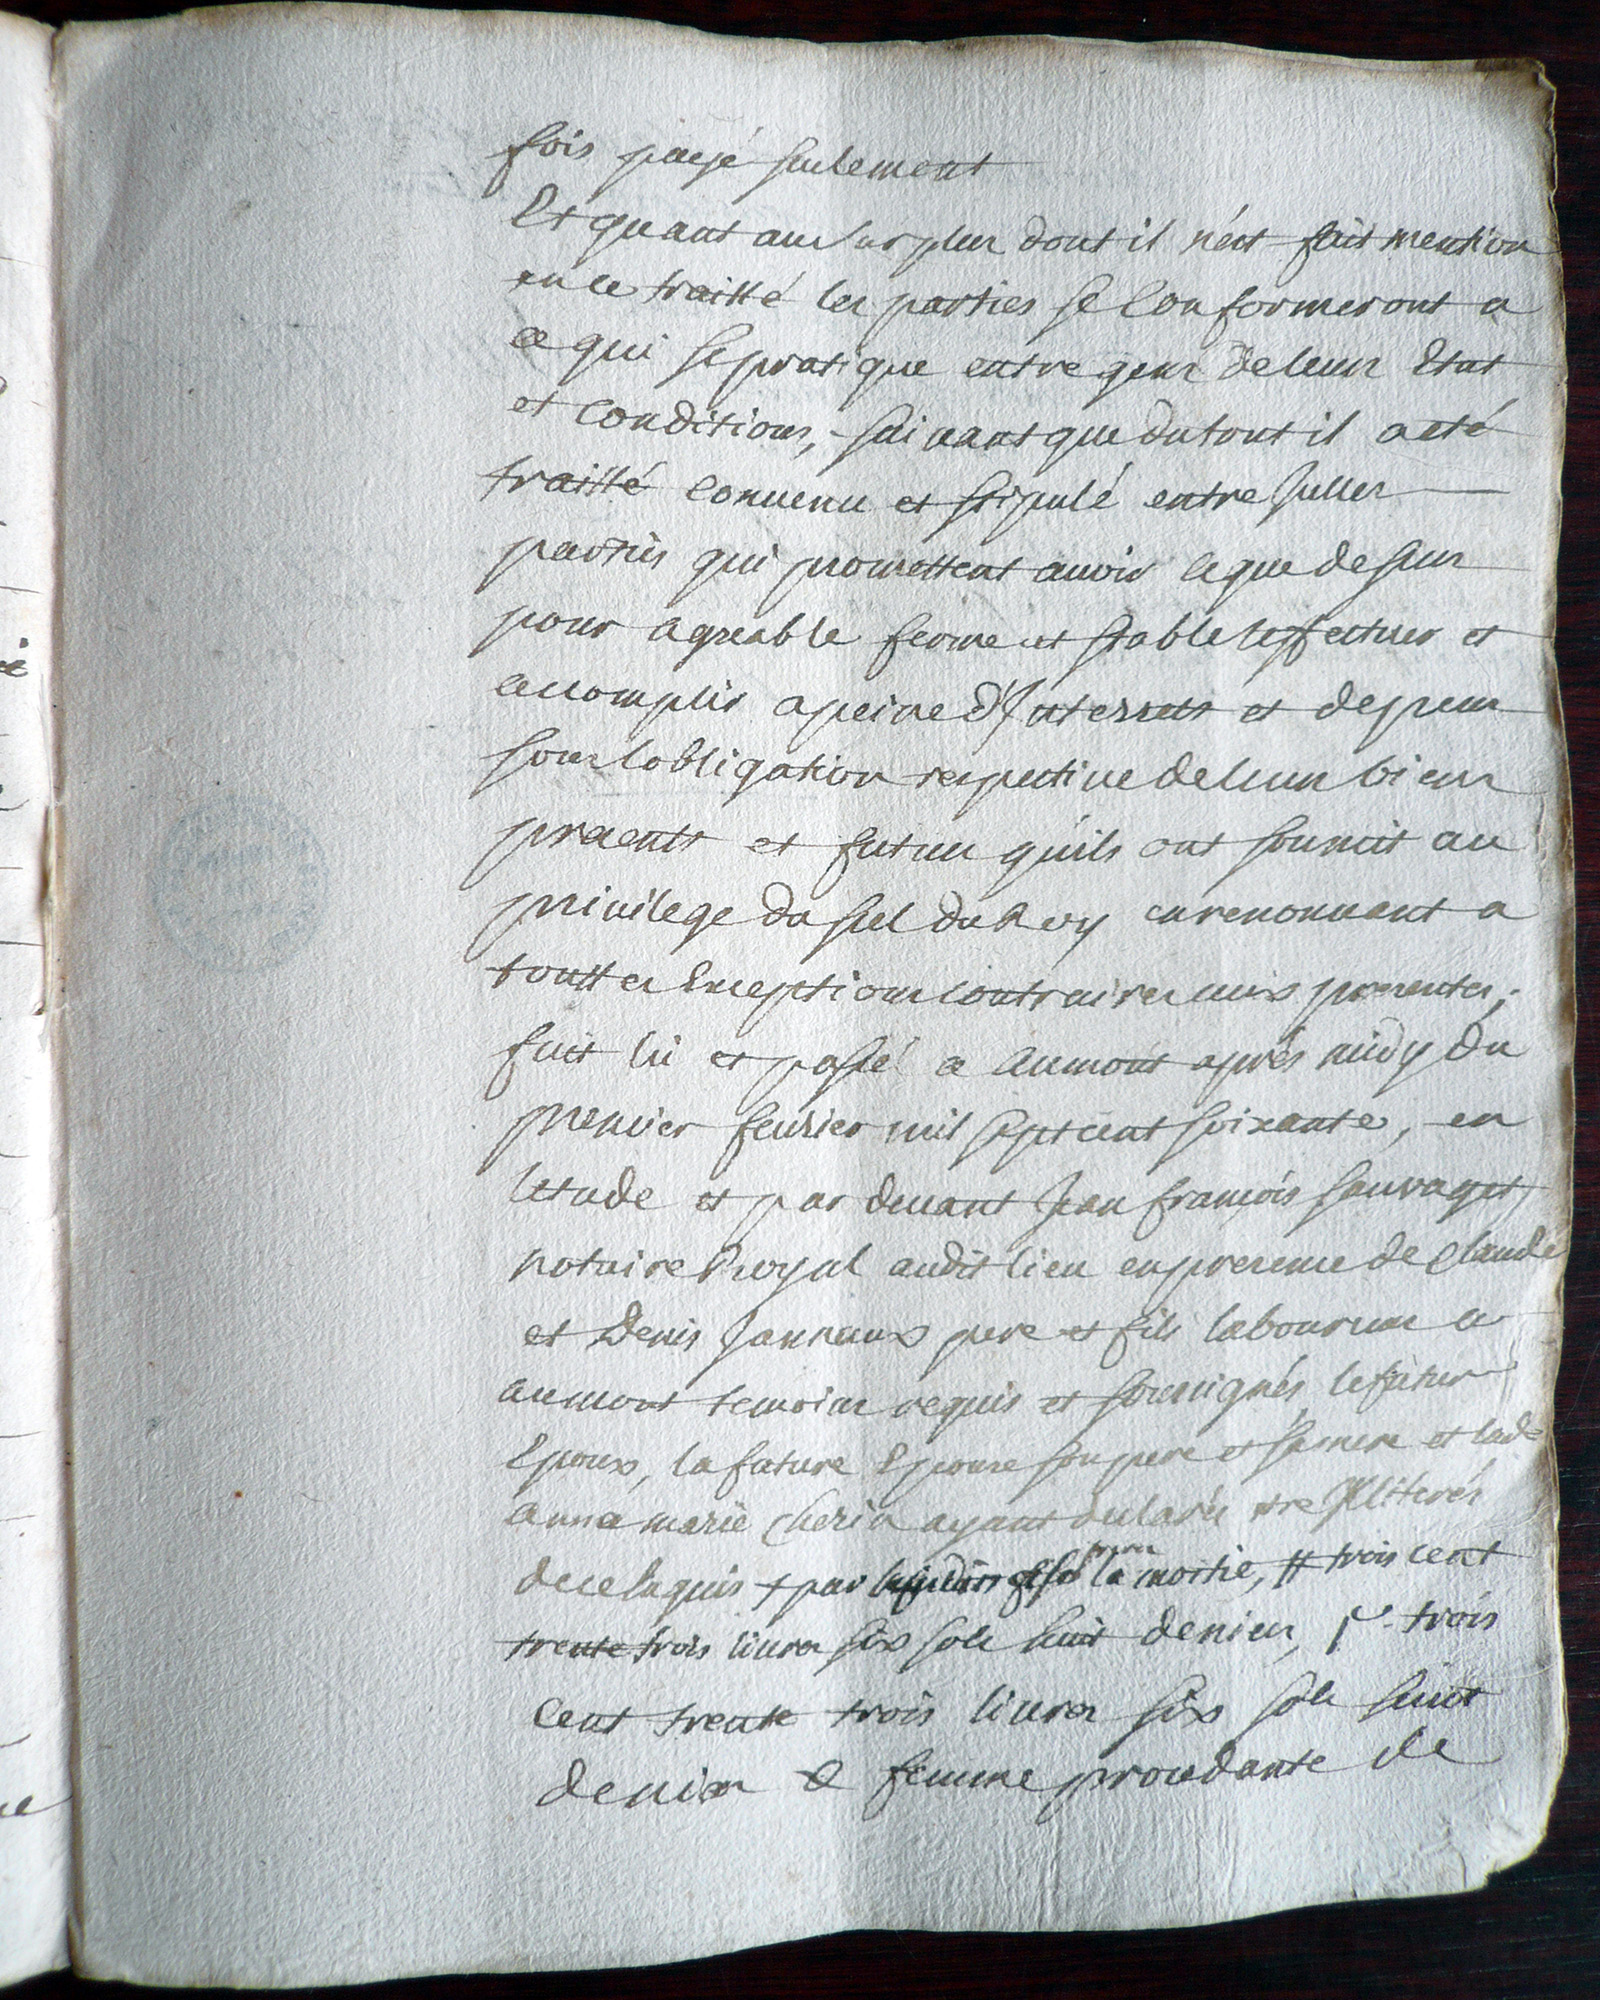 fois payé seulement
Et quant au surplus dont il n'est fait mention
en ce traitté les parties se Conformeront a
ce qui se pratique entre gens de leur Etat
et Conditions, suivant que du tout il a eté
traitté Convenu et stipulé entre Jcelles
parties qui promettent avoir ce que dessus
pour agreable ferme et stable l'effectuer et
accomplir a peine d'Jnterrets et depens
sous lobligation respective de leurs biens
praents et futurs quils ont soumit au
privilege du scel du Roy en renonceant a
touttes Exceptions contraires aux presentes;
fait lu et passé a aumont après midy du
premier fevrier mil sept cent soixante, en
letude et par devant Jean françois sauvaget
notaire Royal audit lieu en presence de Claude
et Denis Janneaux pere et fils laboureurs a
aumont temoins requis et soussignés le futur
Epoux, la future Epouse son pere et sa mere et lade
anne marie Cherin ayant declarés etre Jlliterés
de ce Enquis + par la moitie, # trois cent
trente trois livres six sols huit deniers, trois
Cent trente trois livres six sols huit
deniers & femme procedante de